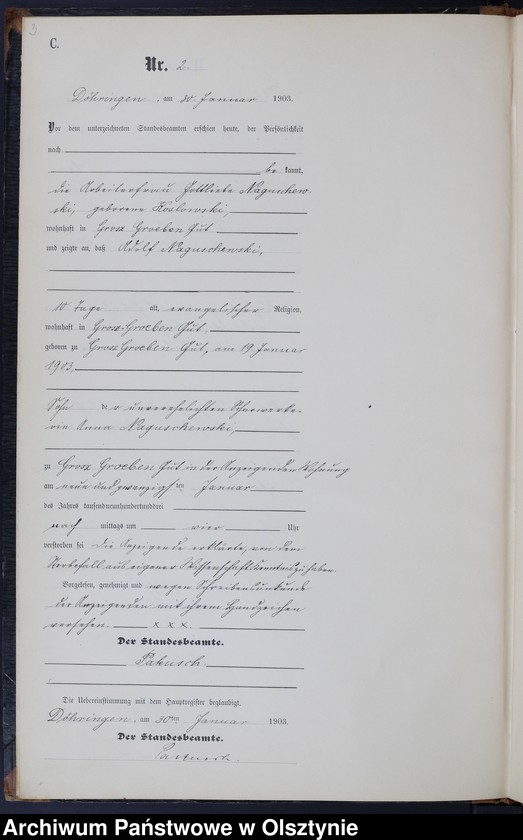 3
C.
Nr. 2.
Döhringen, am 30. Januar 1903.
Vor dem unterzeichneten Standesbeamten erschien heute, der Persönlichkeit
nach
be kannt,
die Arbeiterfrau Gottliebe Naguschew-
ski, geborene Koslowski,
wohnhaft in Grosz Groeben Gut
und zeigte an, daß Adolf Naguschewski,
10 Tage alt, evangelischer Religion,
wohnhaft in Grosz-Groeben Gut,
geboren zu Grosz Groeben Gut, am 19. Januar
1903,
Sohn der unverehelichten Scharwerke-
rin Anna Naguschewski,
zu Grosz Groeben Gut in der Anzeigenden Wohnung
am neun und zwanzigsten Januar
des Jahres tausendneunhundertunddrei
nach mittags um vier Uhr
verstorben sei. Die Anzeigende erklärte, von dem
Sterbefall aus eigener Wissenschaft Kenntnis zu haben.
Vorgelesen, genehmigt und wegen Schreibensunkunde
der Anzeigenden mit ihrem Handzeichen
versehen. x x x.
Der Standesbeamte.
Pakusch.
Die Uebereinstimmung mit dem Hauptregister beglaubigt.
Döhringen, am 30ten Januar 1903.
Der Standesbeamte.
Pakusch.
Archiwum Państwowe w Olsztynie